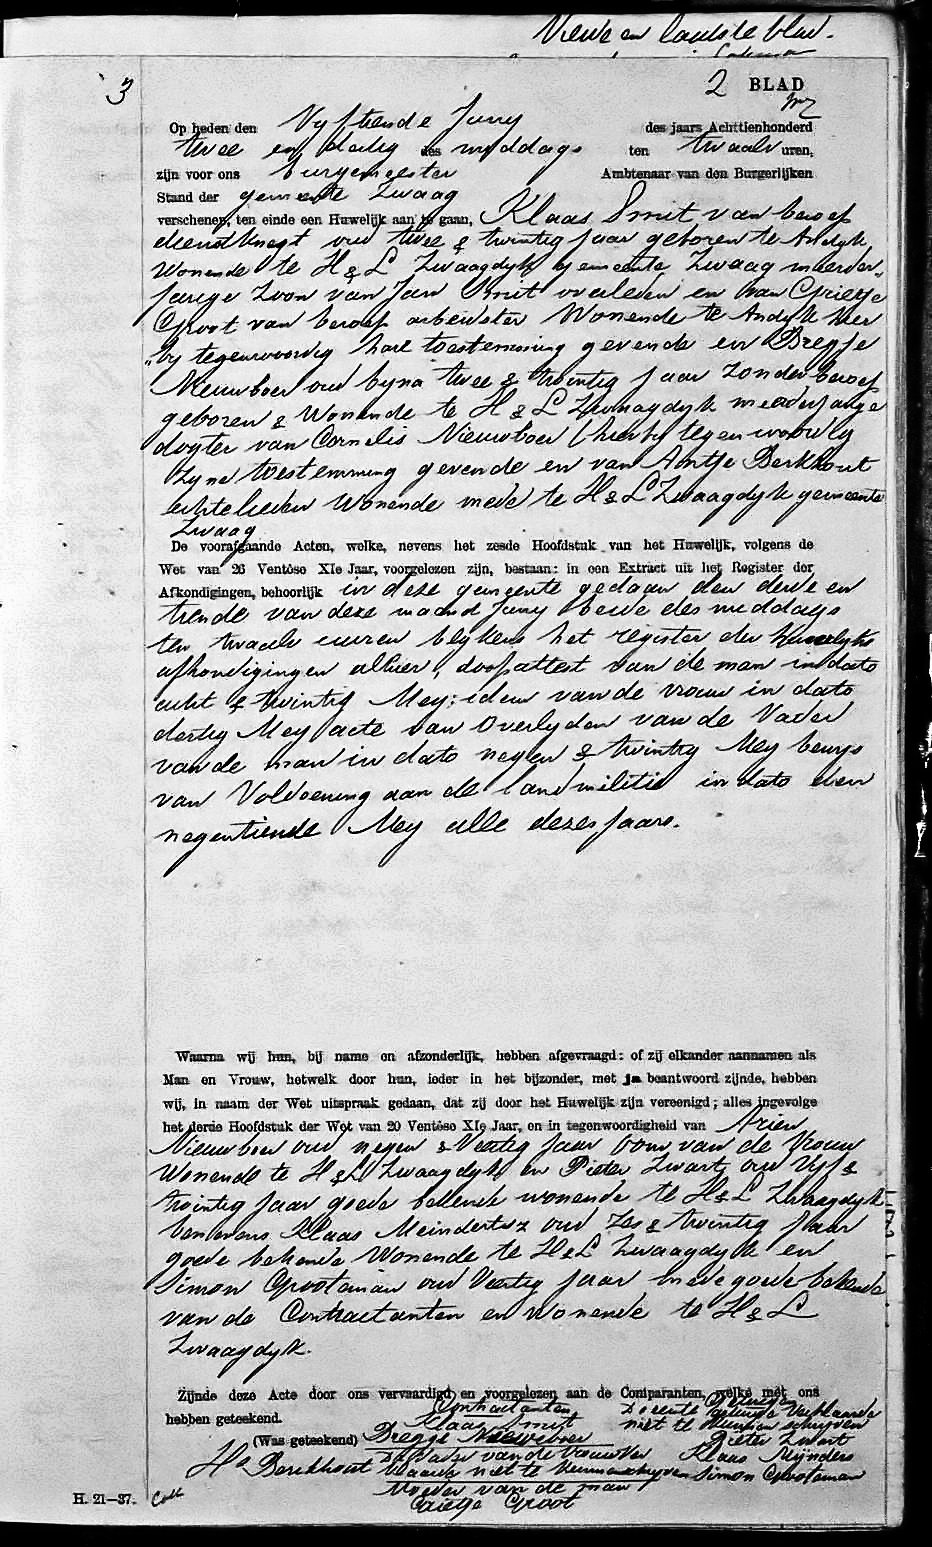 Vierde en laatste blad.
3 2 BLAD
Op heden den Vyftiende Juny des jaars Achttienhonderd
twee en dertig des middags ten twaalv uren,
zijn voor ons burgemeester Ambtenaar van den Burgerlijken
Stand der gemeente Zwaag
verschenen, ten einde een Huwelijk aan te gaan, Klaas Smit van beroep
dienstknegt oud twee & twintig jaar geboren te Andyk,
Wonende te H & L Zwaagdyk gemeente Zwaag meerder„
jarige Zoon van Jan Smit overleden en van Grietje
Groot van beroep arbeidster Wonende te Andyk hier
„by tegenwoordig hare toestemming gevende en Bregje
Nieuwboer oud byna twee & twintig jaar Zonder beroep
geboren & Wonende te H & L Zwaagdyk meerderjarige
dogter van Cornelis Nieuwboer hierby tegenwoordig
Zyne toestemming gevende en van Antje Berkhout
echtelieden Wonende mede te H & L Zwaagdyk gemeente
Zwaag
De voorafgaande Acten, welke, nevens het zesde Hoofdstuk van het Huwelijk, volgens de
Wet van 26 Ventôse XIe Jaar, voorgelezen zijn, bestaan: in een Extract uit het Register der
Afkondigingen, behoorlijk in deze gemeente gedaan den derde en
tiende van deze maand Juny beide des middags
ten twaalv uuren blykens het register der huwelyks
afkondigingen alhier, doopattest van de man in dato
acht & twintig Mey; idem van de vrouw in dato
dertig Mey acte van Overlyden van de Vader
van de man in dato negen & twintig Mey bewys
van Voldoening aan de landmilitie in dato den
negentiende Mey alle dezes jaars.
Waarna wij hun, bij name en afzonderlijk, hebben afgevraagd: of zij elkander aannamen als
Man en Vrouw, hetwelk door hun, ieder in het bijzonder, met ja beantwoord zijnde, hebben
wij, in naam der Wet uitspraak gedaan, dat zij door het Huwelijk zijn vereenigd; alles ingevolge
het derde Hoofdstuk der Wet van 20 Ventôse XIe Jaar, en in tegenwoordigheid van Arien
Nieuwboer oud negen & Veertig jaar Oom van de Vrouw
Wonende te H & L Zwaagdyk en Pieter Zwart oud Vyf &
twintig jaar goede bekende wonende te H & L Zwaagdyk
benevens Klaas Meindertsz oud Zes & twintig jaar
goede bekende Wonende te H & L Zwaagdyk en
Simon Grooteman oud Veertig jaar mede goede bekende
van de Contractanten en Wonende te H & L
Zwaagdyk.
Zijnde deze Acte door ons vervaardigd en voorgelezen aan de Comparanten, welke met ons
hebben geteekend. Contractanten De eerste getuige Verklaarde
Klaas Smit niet te kunnen schryven
(Was geteekend) Bregje Nieuweboer Pieter Zwart
De Vader van de Vrouw Ver Klaas Mijnders
Ha Berckhout klaarde niet te kunnen schryven Simon Grooteman
Moeder van de man
Grietje Groot
H. 21—37. Coll